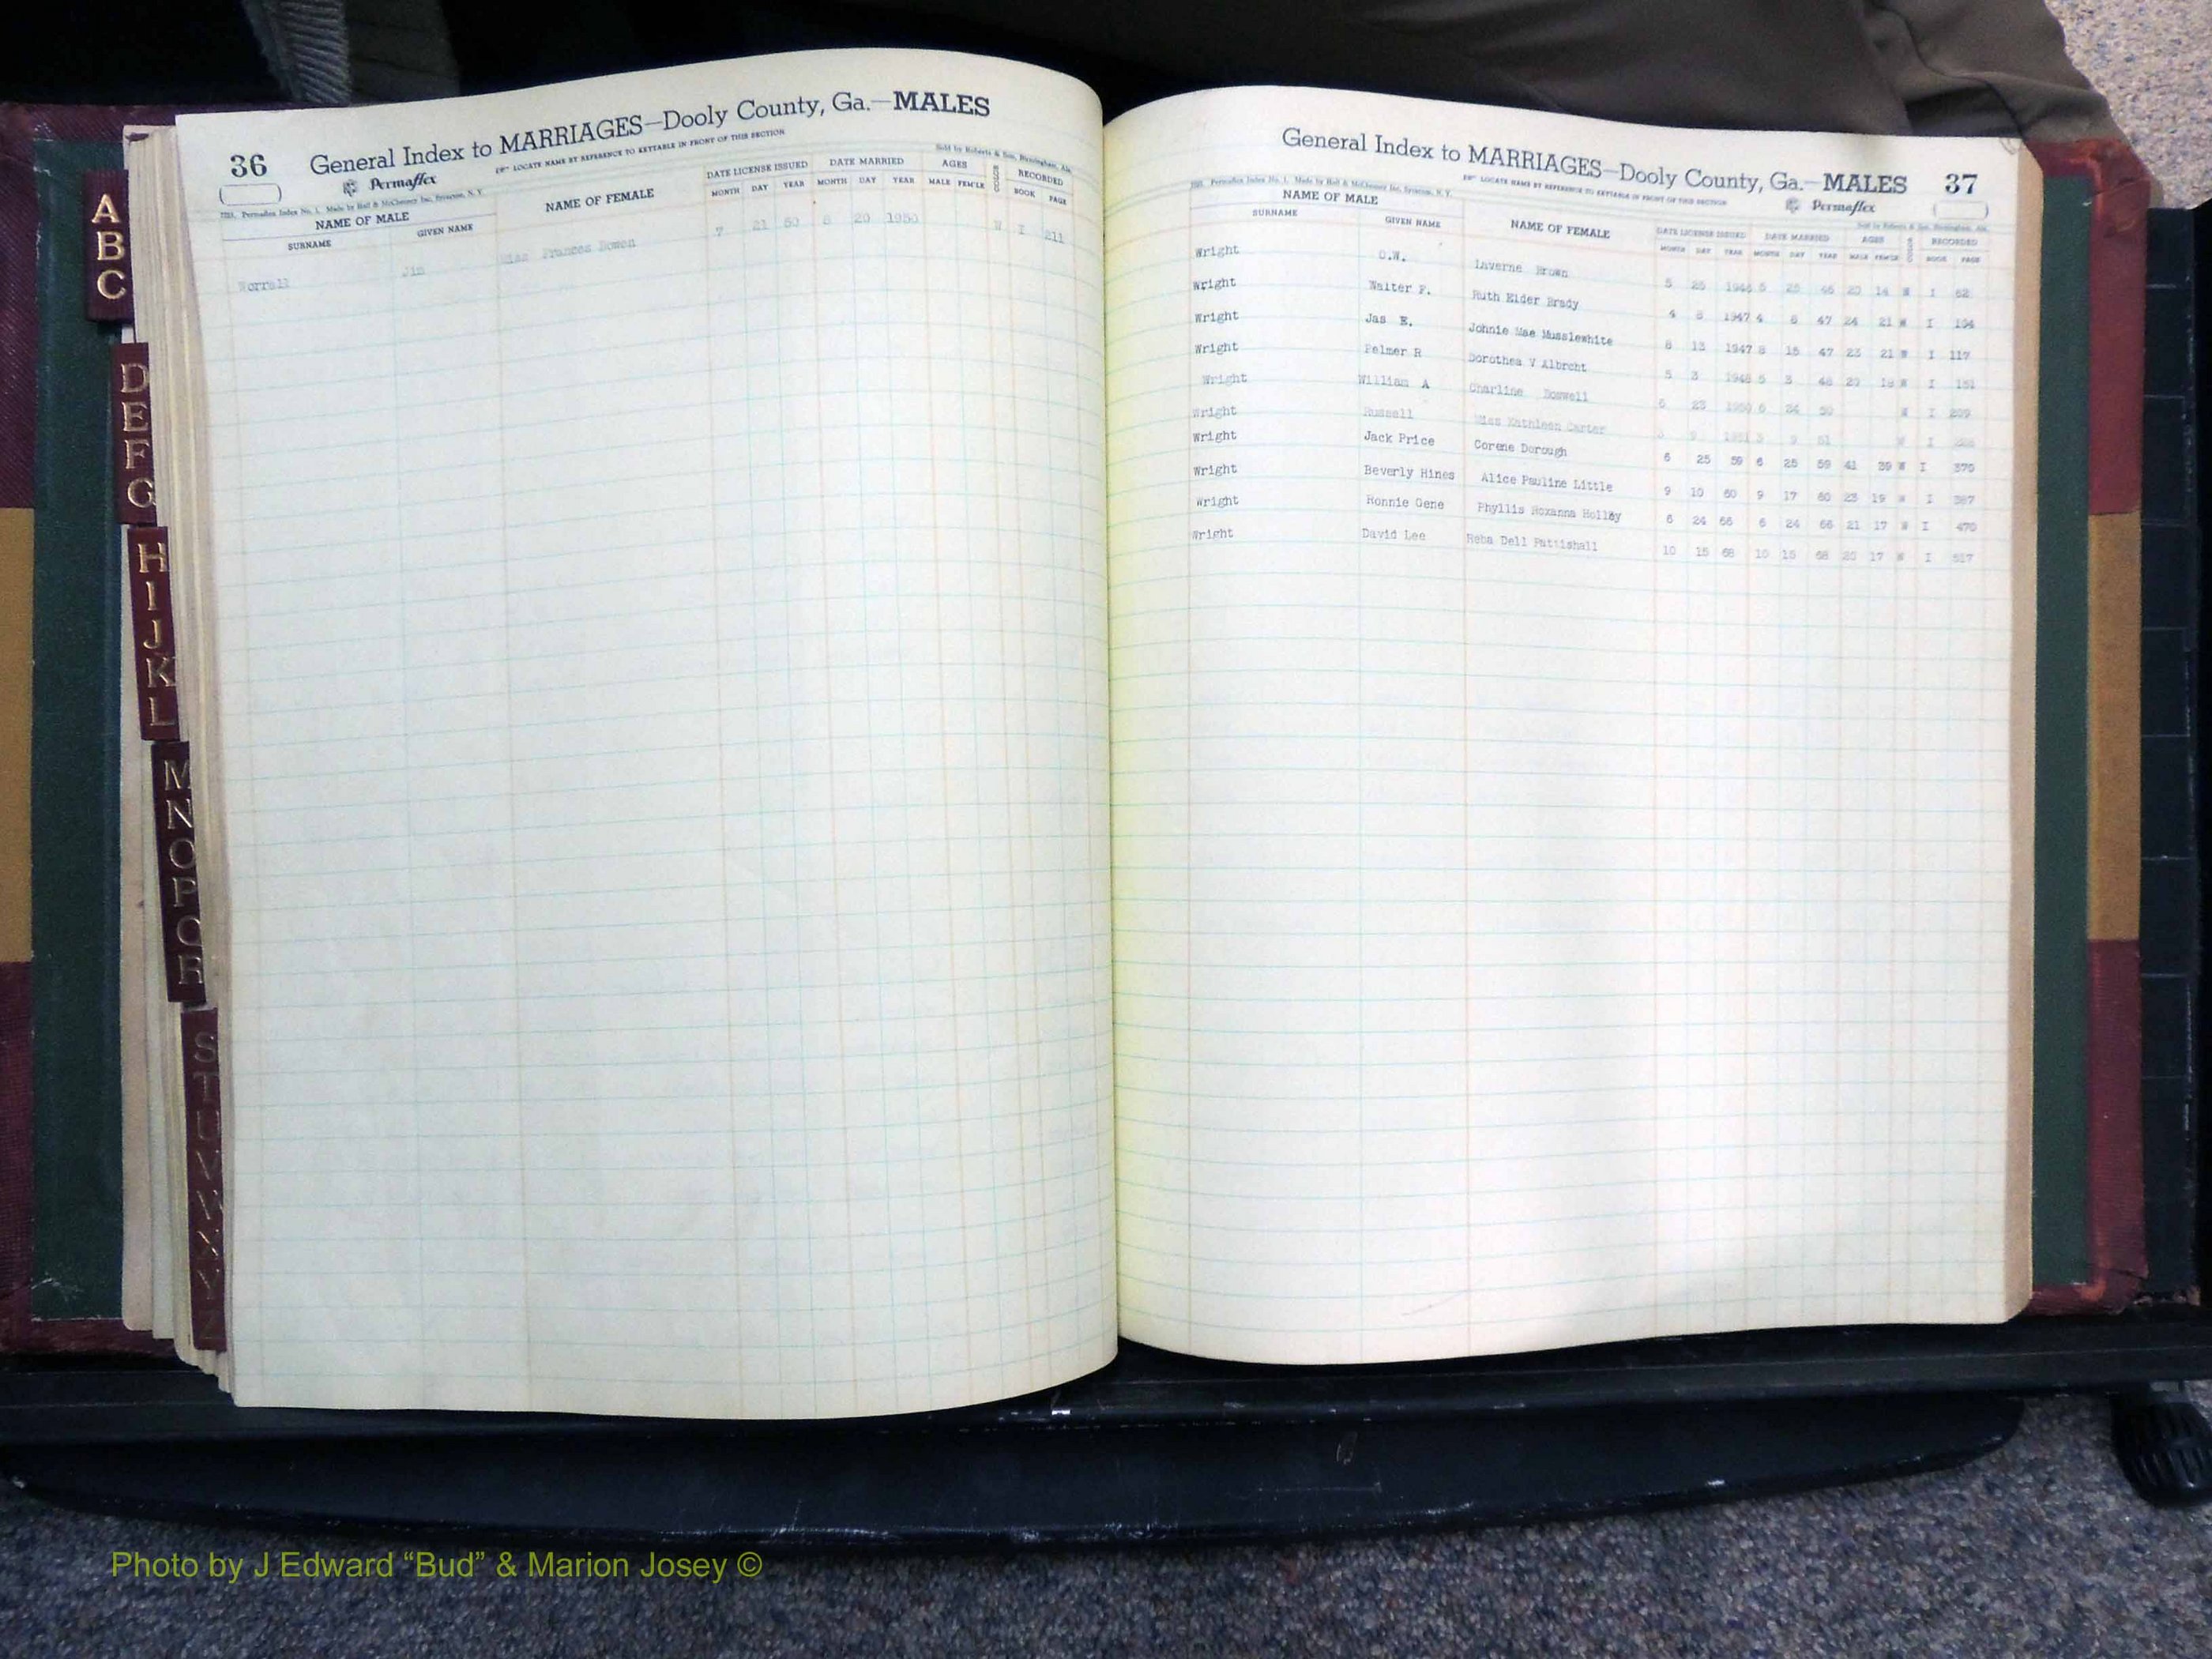 36
General Index to MARRIAGES—Dooly County, Ga.—MALES
Permaflex
LOCATE NAME BY REFERENCE TO KEYTABLE IN FRONT OF THIS SECTION
Sold by Roberts & Son, Birmingham, Ala.
NAME OF MALE NAME OF FEMALE DATE LICENSE ISSUED DATE MARRIED AGES RECORDED
SURNAME GIVEN NAME MONTH DAY YEAR MONTH DAY YEAR MALE FEM'LE BOOK PAGE
Worrall Jim Miss Frances Bowen 7 21 50 20 1950 W I 211
General Index to MARRIAGES—Dooly County, Ga.—MALES 37
LOCATE NAME BY REFERENCE TO KEYTABLE IN FRONT OF THIS SECTION
Permaflex
Sold by Roberts & Son, Birmingham, Ala.
NAME OF MALE NAME OF FEMALE DATE LICENSE ISSUED DATE MARRIED AGES RECORDED
SURNAME GIVEN NAME MONTH DAY YEAR MONTH DAY YEAR MALE FEM'LE BOOK PAGE
Wright O.W. Laverne Brown 5 25 1946 5 25 46 20 14 W I 62
Wright Walter F. Ruth Elder Brady 4 1947 4 47 24 21 W I 104
Wright Jas E. Johnie Mae Musslewhite 8 13 1947 8 15 47 23 21 W I 117
Wright Palmer R Dorothea V Albrcht 5 3 1948 5 3 48 18 W I 151
Wright William A Charline 6 23 1950 6 24 50 W I 209
Wright Russell Miss Kathleen Carter 9 1951 9 51 W I
Wright Jack Price Corene Dorough 6 25 59 6 25 59 41 39 W I 370
Wright Beverly Hines Alice Pauline Little 9 10 60 9 17 60 23 19 W I 387
Wright Ronnie Gene Phyllis Roxanna Holley 6 24 66 6 24 66 21 17 W I 470
Wright David Lee Reba Dell Pattishall 10 15 68 10 15 68 20 17 W I 517
A
B
C
D
E
F
G
H
I
J
K
L
M
N
O
P
Q
R
S
T
U
V
W
X
Y
Z
Photo by J Edward “Bud” & Marion Josey ©